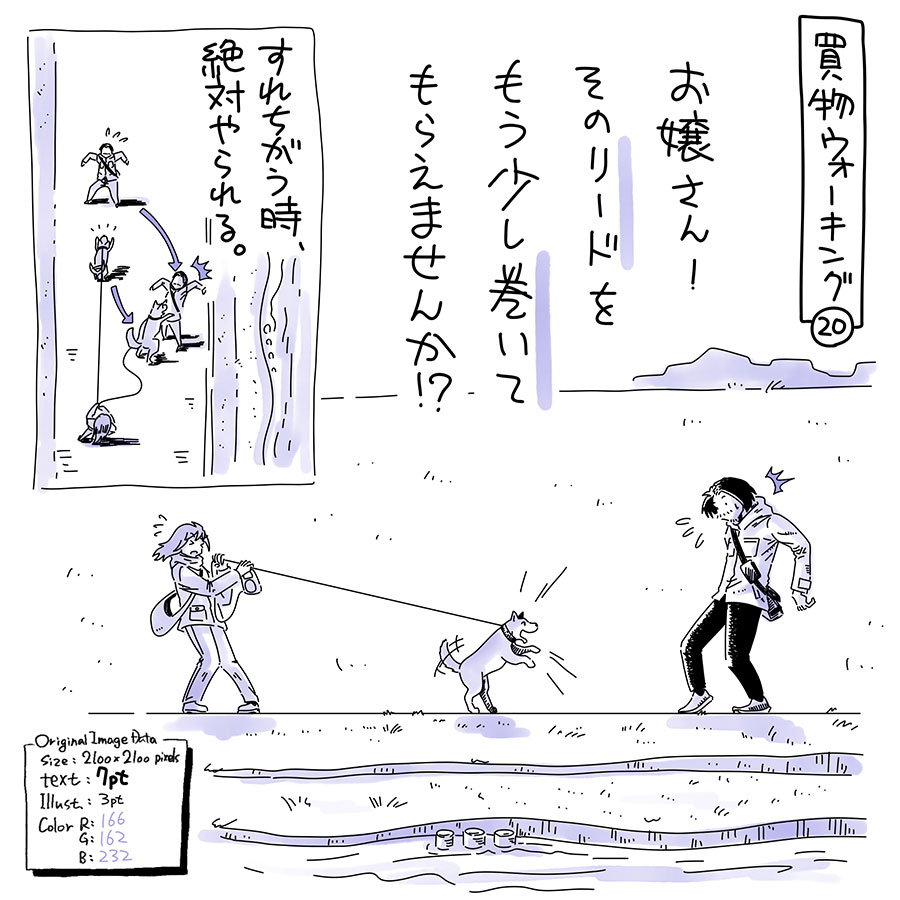 買物ウォーキング⑳
お嬢さん!
そのリードを
もう少し巻いて
もらえませんか!?
すれちがう時、
絶対やられる。
Original Image Data
Size : 2100×2100 pixels
text : 7pt
Illust. : 3pt
Color R: 166
G: 162
B: 232